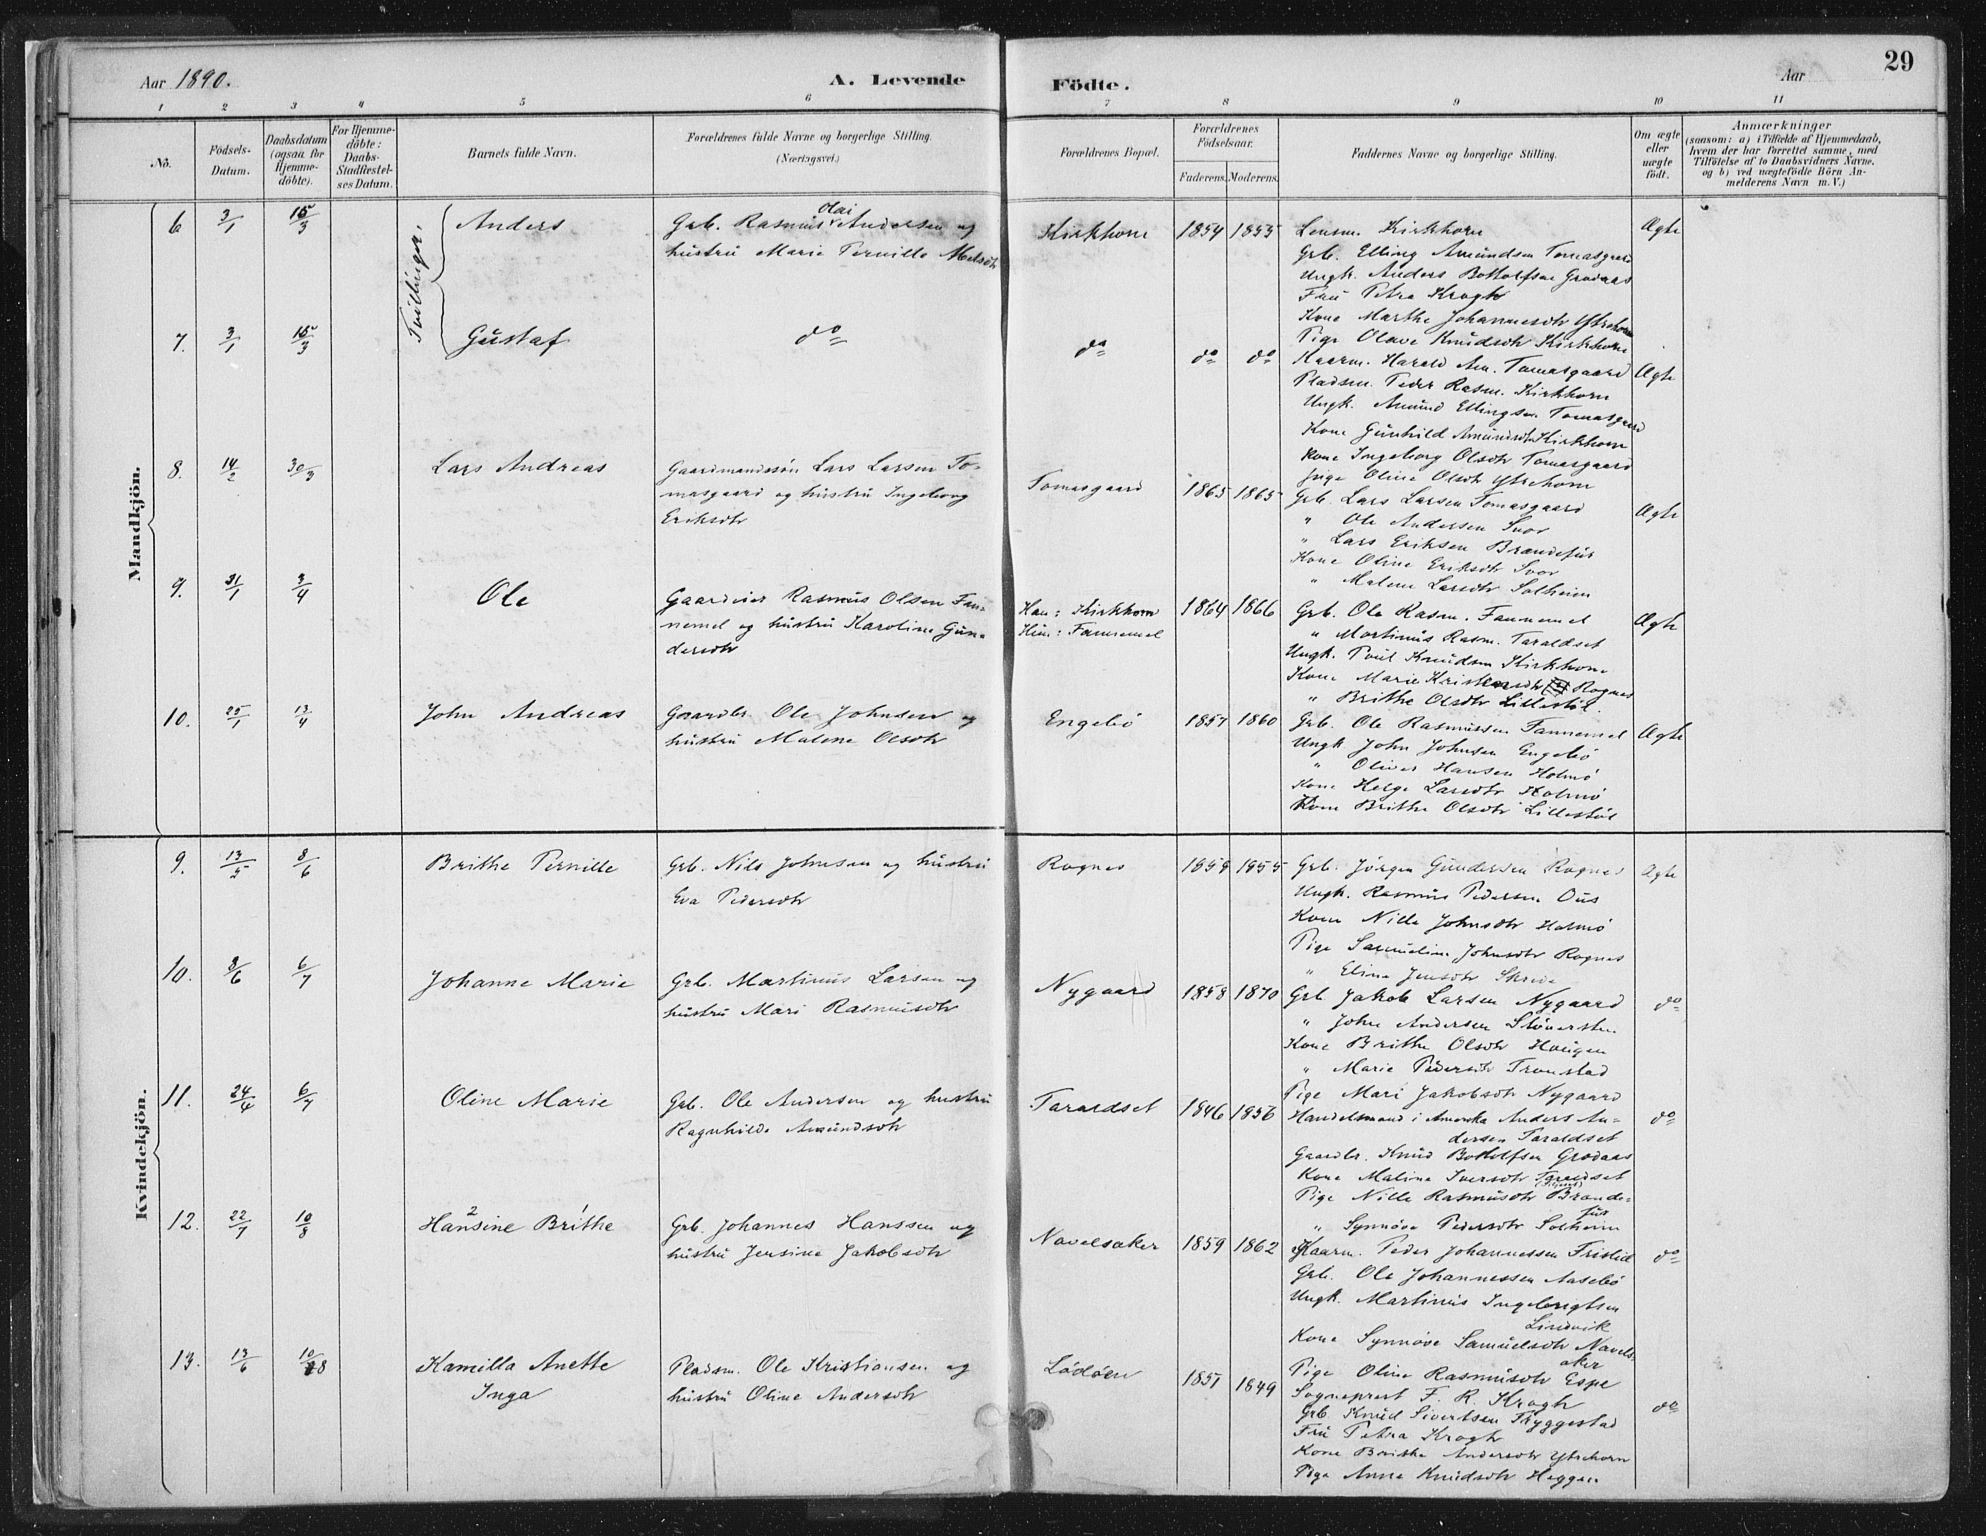 29
Aar 1890.
A. Levende
Födte.
Aar
1 2 3 4 5 6 7 8 9 10 11
No.
Födsels-Datum.
Daabsdatum (ogsaa for Hjemme-döbte).
For Hjemme-döbte: Daabs-Stadfæstel-ses Datum.
Barnets fulde Navn.
Forældrenes fulde Navne og borgerlige Stilling.
(Næringsvei.)
Forældrenes Bopæl.
Forældrenes Födselsaar.
Faderens. Moderens.
Faddernes Navne og borgerlige Stilling.
Om ægte eller uægte födt.
Anmærkninger
(saasom: a) i Tilfælde af Hjemmedaab, hvem der har forrettet samme, med Tilföielse af to Daabsvidners Navne, og b) ved uægtefödte Börn An-melderens Navn m. V.)
Mandkjön.
Tvillinger.
6 3/1 15/3 Anders
Grb. Rasmus Olai Andersen og
hustru Marie Pernille
Kirkhorn 1854 1855
Lensm. Kirkhorn
Grb. Elling Amundsen Tomasgaard
Ungk. Anders Bottolfsen Grodaas
Fru Petra Krogh
Kone Marthe Johannesdtr Ytrehorn
Pige Olave Knudsdtr Kirkhorn
Ægte
7. 3/1 15/3 Gustaf
do do do do
Kaarm. Harald An. Tomasgaard
Pladsm. Peder Rasm. Kirkhorn
Ungk. Amund Ellingsen Tomasgaard
Kone Gunhild Amundsdtr Kirkhorn
Kone Ingeborg Olsdtr Tomasgaard
Pige Oline Olsdtr Ytrehorn
Ægte
8. 14/2 30/3 Lars Andreas
Gaardmandssön Lars Larsen To-
masgaard og hustru Ingeborg
Eriksdtr
Tomasgaard 1865 1865
Grb. Lars Larsen Tomasgaard
" Ole Andersen Svor
" Lars Eriksen Brandefus
Kone Oline Eriksdtr Svor
" Malene Larsdtr Solheim
Ægte
9. 31/1 3/4 Ole
Gaardeier Rasmus Olsen Fan-
nemel og hustru Karoline Gun-
dersdtr
Han: Kirkhorn
Hun: Fannemel
1864 1866
Grb. Ole Rasm. Fannemel
" Martinus Rasm. Taraldset
Ungk. Poul Knudsen Kirkhorn
Kone Marie Rognes
" Brithe Olsdtr Lillestöl.
Ægte
10. 25/1 13/4 John Andreas
Gaardbr. Ole Johnsen og
hustru Malene Olsdtr
Engebö 1857 1860
Grb. Ole Rasmussen Fannemel
Ungk. John Johnsen Engebö
" Oliver Hansen Holmö
Kone Helge Larsdtr Holmö
Kone Brithe Olsdtr Lillestöl
Ægte
Kvindekjön.
9. 13/5 8/6 Brithe Pernille
Grb. Nils Johnsen og hustru
Eva Pedersdtr
Rognes 1859 1855
Grb. Jörgen Gundersen Rognes
Ungk. Rasmus Pedersen Ous
Kone Nille Johnsdtr Holmö
Pige Samueline Johnsdtr Rognes
" Eline Jensdtr Skride
Ægte
10. 8/6 6/7 Johanne Marie
Grb. Martinus Larsen og
hustru Mari Rasmusdtr
Nygaard 1858 1870
Grb Jakob Larsen Nygaard
" John Andersen Stönersten
Kone Brithe Olsdtr Haugen
" Marie Pedersdtr Tronstad
Pige Mari Jakobsdtr Nygaard
do
11. 24/4 6/7 Oline Marie
Grb. Ole Andersen og hustru
Ragnhilde Amundsdtr
Taraldset 1846 1856
Handelsmand i Amerika Anders An-
dersen Taraldset
Gaardbr. Knud Bottolfsen Grodaas
Kone Malene Iversdtr
Pige Nille Rasmusdtr Brande-
fus
" Synnöve Pedersdtr Solheim
do
12. 22/7 10/8 Hansine Brithe
Grb. Johannes Hanssen og
hustru Jensine Jakobsdtr
Navelsaker 1859 1862
Kaarm. Peder Johannessen Fristid
Grb. Ole Johannessen Aasebö
Ungk. Martinus Ingebrigtsen
Lindvik
Kone Synnöve Samuelsdtr Navels-
aker
Pige Oline Rasmusdtr Espe
do
13. 13/6 10/8 Kamilla Anette
Inga
Pladsm. Ole Kristiansen og
hustru Oline Andersdtr
Lödöen 1857 1849
Sogneprest F. R. Krogh
Grb. Knud Sivertsen Tryggestad
Fru Petra Krogh
Kone Brithe Andersdtr Ytrehorn
Pige Anne Knudsdtr Heggen
do